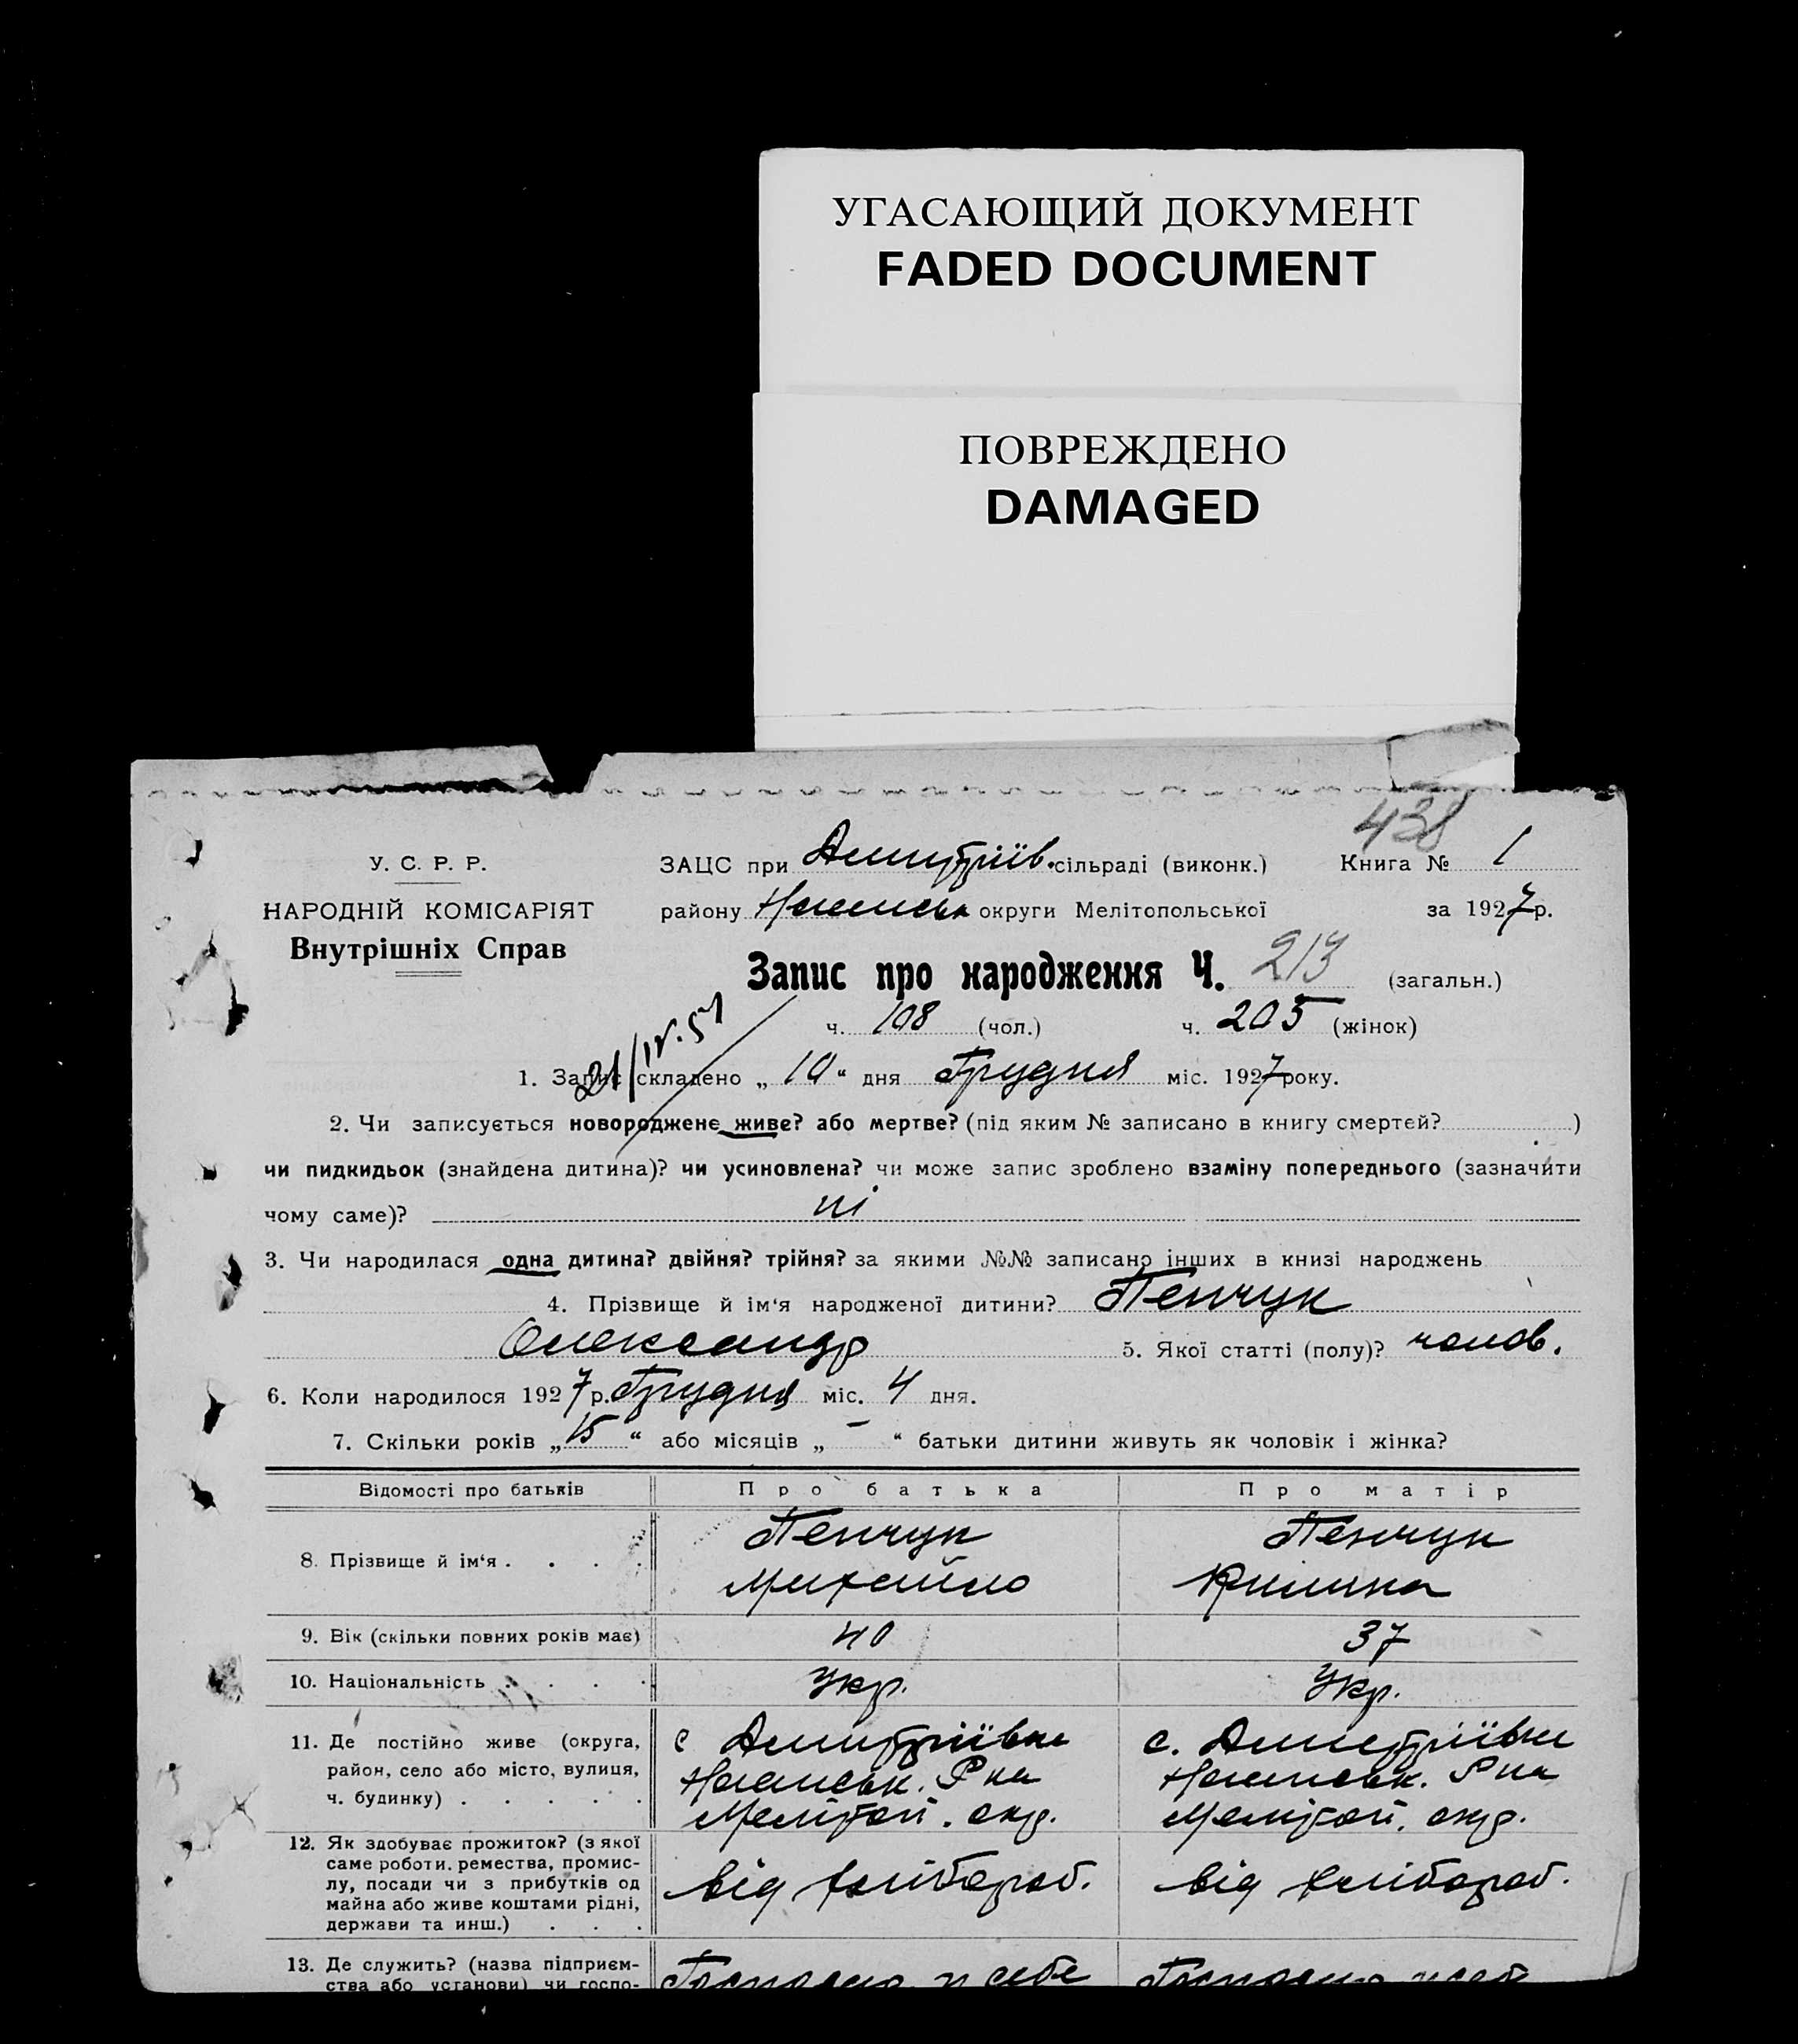 УГАСАЮЩИЙ ДОКУМЕНТ
FADED DOCUMENT
ПОВРЕЖДЕНО
DAMAGED
438
У. С. Р. Р.
НАРОДНІЙ КОМІСАРІЯТ
Внутрішніх Справ
ЗАЦС при Дмитріїв. сільраді (виконк.) Книга № 1
району округи Мелітопольської за 1927 р.
Запис про народження Ч. 213 (загальн.)
ч. 108 (чол.) ч. 205 (жінок)
21/IV.57
1. Запис складено „10“ дня Грудня міс. 1927 року.
2. Чи записується новороджене живе? або мертве? (під яким № записано в книгу смертей? )
чи пидкидьок (знайдена дитина)? чи усиновлена? чи може запис зроблено взаміну попереднього (зазначити
чому саме)? ні
3. Чи народилася одна дитина? двійня? трійня? за якими №№ записано інших в книзі народжень
4. Прізвище й ім‘я народженої дитини? Пенчук
Олександр 5. Якої статті (полу)? чолов.
6. Коли народилося 1927 р. Грудня міс. 4 дня.
7. Скільки років „15“ або місяців „–“ батьки дитини живуть як чоловік і жінка?
Відомості про батьків Про батька Про матір
8. Прізвище й ім‘я . . . . Пенчук Михайло Пенчук
9. Вік (скільки повних років має) 40 37
10. Національність . . . . Укр. Укр.
11. Де постійно живе (округа,
район, село або місто, вулиця,
ч. будинку) . . . . .
с Дмитріївка
Р на
Мелітоп. окр.
с. Дмитріївка
Р на
Мелітоп. окр.
12. Як здобуває прожиток? (з якої
саме роботи, ремества, промис-
лу, посади чи з прибутків од
майна або живе коштами рідні,
держави та инш.) . . .
від хлібороб.
від хлібороб.
13. Де служить? (назва підприєм-
ства або установи) чи госпо-